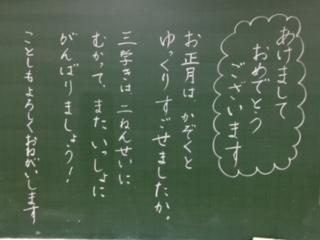 あけまして
おめでとう
ございます
お正月は、かぞくと
ゆっくりすごせましたか。
三学きは、二ねんせいに
むかって、またいっしょに
がんばりましょう!
ことしもよろしくおねがいします